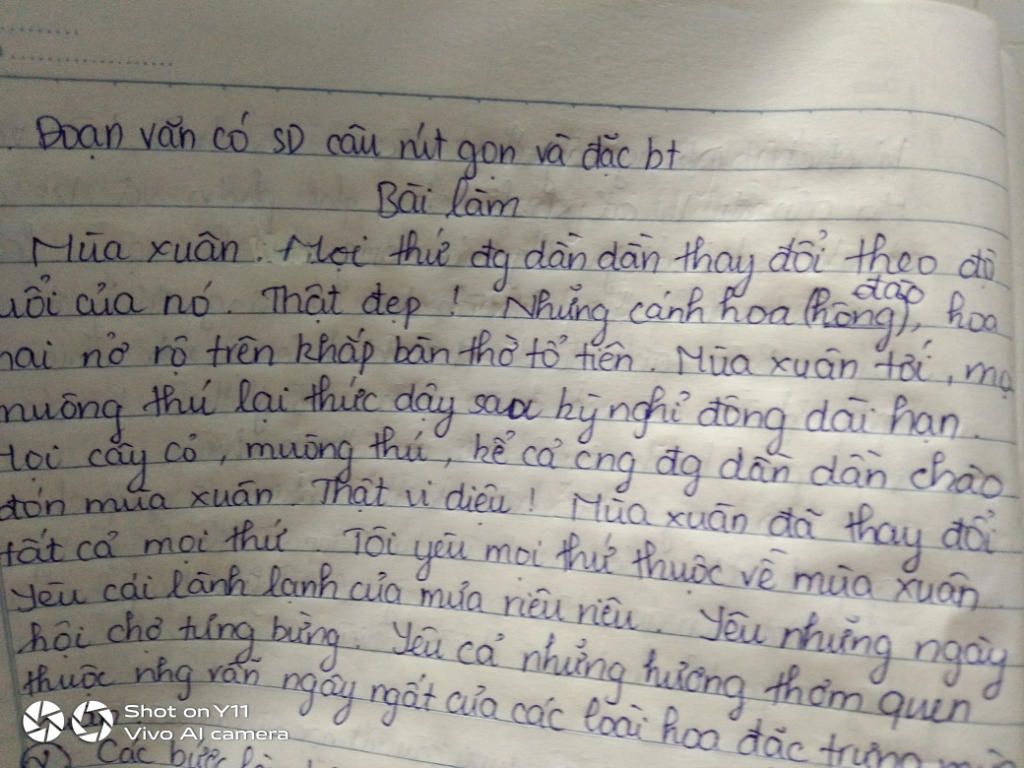 Đoạn văn có SD câu rút gọn và đặc bt
Bài làm
Mùa xuân. Mọi thứ đg dần dần thay đổi theo độ
uổi của nó. Thật đẹp! Những cánh hoa (hồng) đào, hoa
mai nở rộ trên khắp bàn thờ tổ tiên. Mùa xuân tới, mọ
muông thú lại thức dậy sau kỳ nghỉ đông dài hạn.
Mọi cây cỏ, muông thú, kể cả cng đg dần dần chào
đón mùa xuân. Thật vi diệu! Mùa xuân đã thay đổi
tất cả mọi thứ. Tôi yêu mọi thứ thuộc về mùa xuân.
Yêu cái lành lạnh của mưa riêu riêu. Yêu những ngày
hội chợ tưng bừng. Yêu cả những hương thơm quen
thuộc nhg vẫn ngây ngất của các loài hoa đặc trưng
Shot on Y11
Vivo AI camera
Các bước